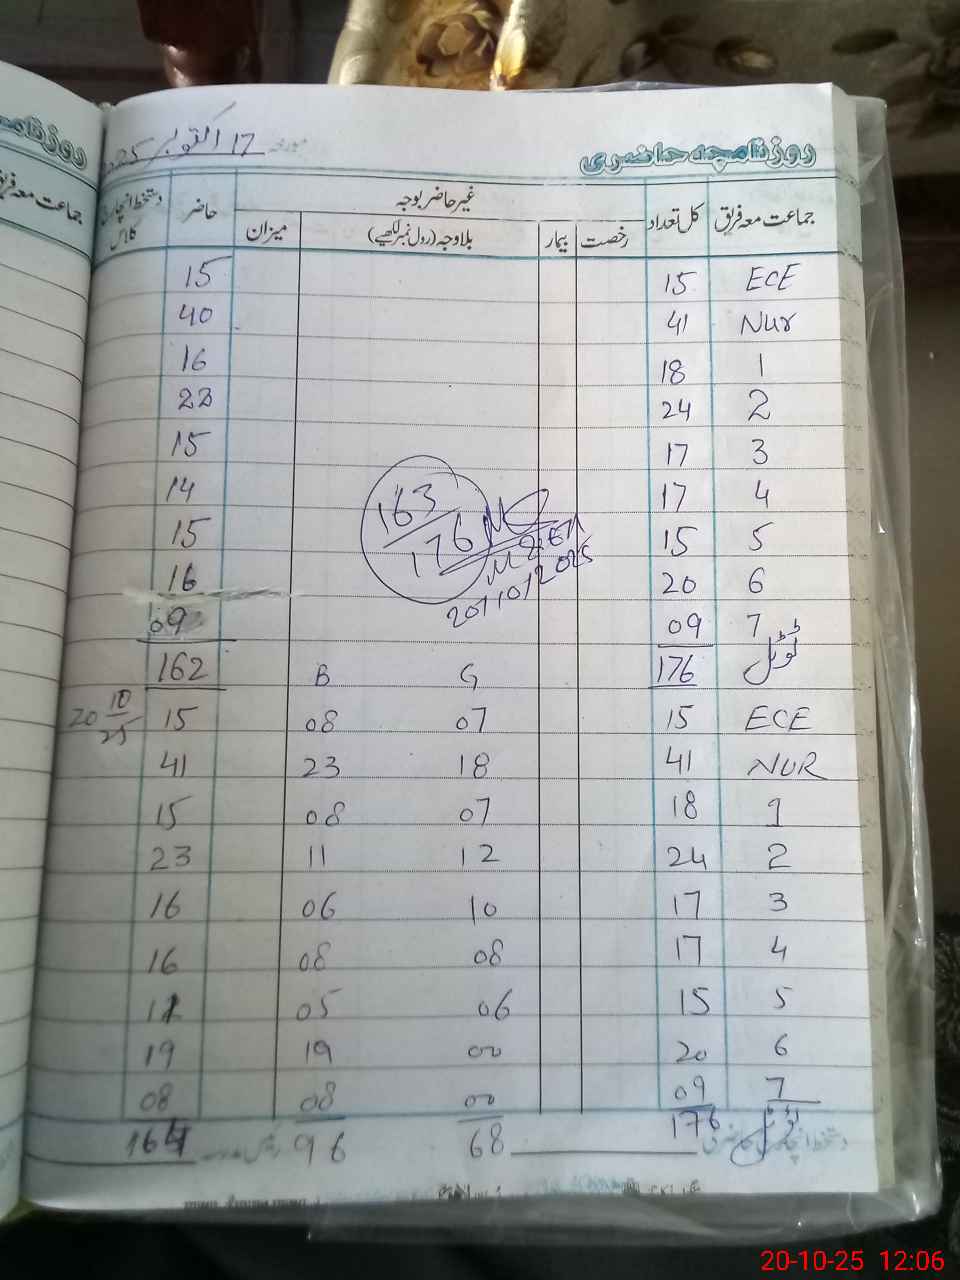 روزنامچہ حاضری
مورخہ 17 اکتوبر 2025
جماعت معہ فریق کل تعداد غیر حاضر بوجہ حاضر دستخط انچارج کلاس
رخصت بیمار بلاوجہ (رول نمبر لکھیے) میزان
ECE 15 15
Nur 41 40
1 18 16
2 24 22
3 17 15
4 17 14
5 15 15
6 20 16
7 09 09
ٹوٹل 176 162
163/176
20/10/2025
G B
20 10/25
ECE 15 07 08 15
NUR 41 18 23 41
1 18 07 08 15
2 24 12 11 23
3 17 10 06 16
4 17 08 08 16
5 15 06 05 11
6 20 00 19 19
7 09 00 08 08
ٹوٹل 176 68 96 164
روزنامچہ
جماعت معہ فریق
20-10-25 12:06